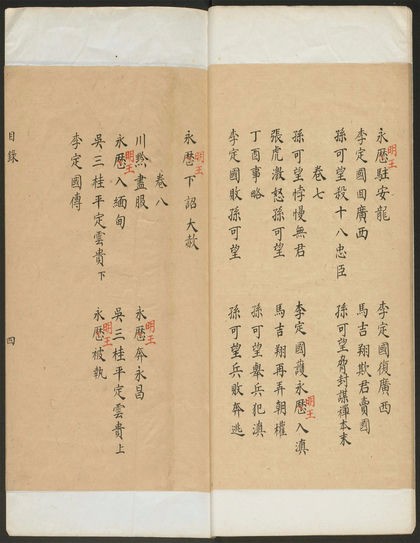 明王
永曆駐安龍 李定國復廣西
李定國回廣西 馬吉翔欺君賣國
孫可望殺十八忠臣 孫可望脅封謀禪本末
卷七
明王
孫可望悖慢無君 李定國護永曆入滇
張虎激怒孫可望 馬吉翔再弄朝權
丁酉事略 孫可望舉兵犯滇
李定國敗孫可望 孫可望兵敗奔逃
明王
永曆下詔大赦
卷八
明王
川黔盡服 永曆奔永昌
明王
永曆入緬甸 吳三桂平定雲貴上
明王
吳三桂平定雲貴下 永曆被執
李定國傳
目錄 四